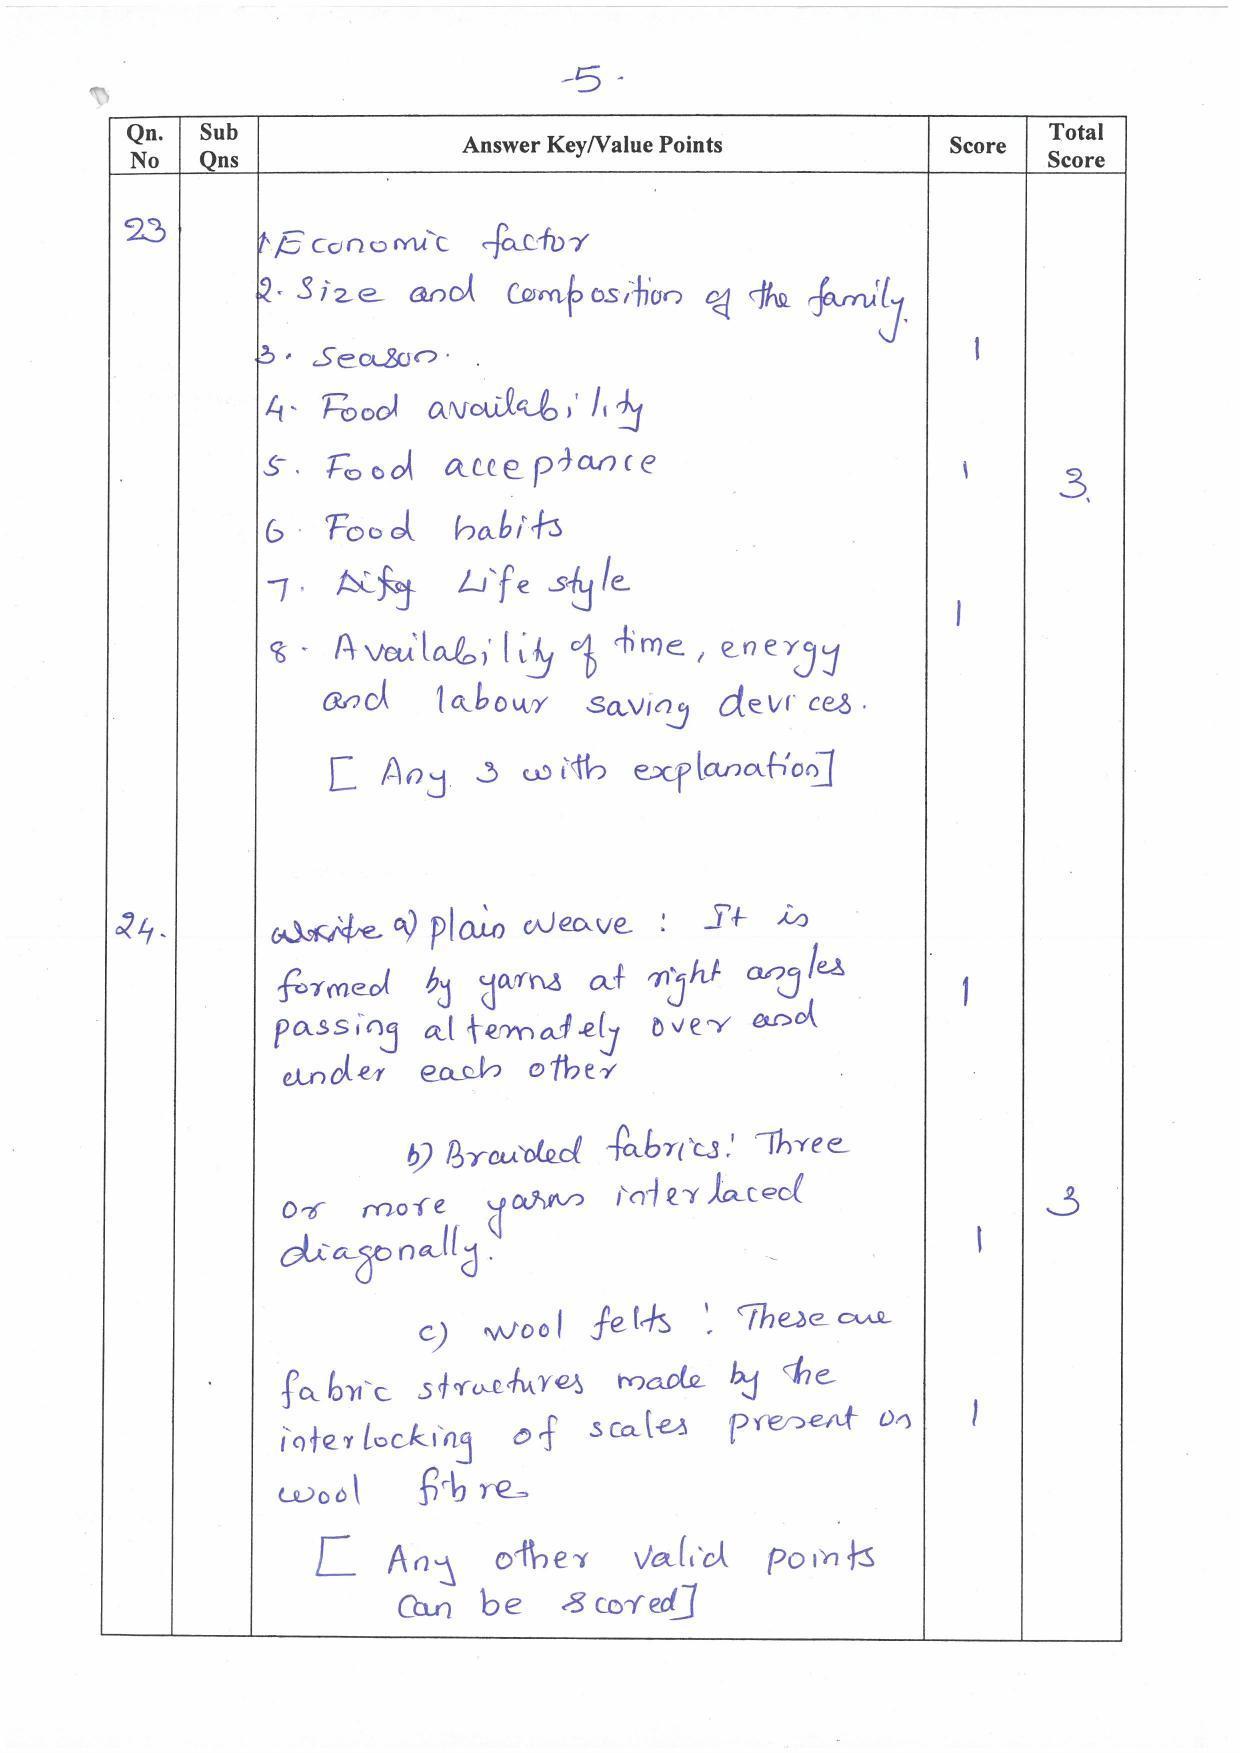 -5-
Qn. No
Sub Qns
Answer Key/Value Points
Score
Total Score
23
1. Economic factor
2. Size and composition of the family.
3. Season.
1
4. Food availability
5. Food acceptance
1
3.
6. Food habits
7. Life style
1
8. Availability of time, energy
and labour saving devices.
[ Any 3 with explanation]
24.
write a) plain weave : It is
formed by yarns at right angles
1
passing alternately over and
under each other
b) Braided fabrics: Three
or more yarns interlaced
3
diagonally.
1
c) wool felts : These are
fabric structures made by the
interlocking of scales present on
1
wool fibre
[ Any other valid points
can be scored]